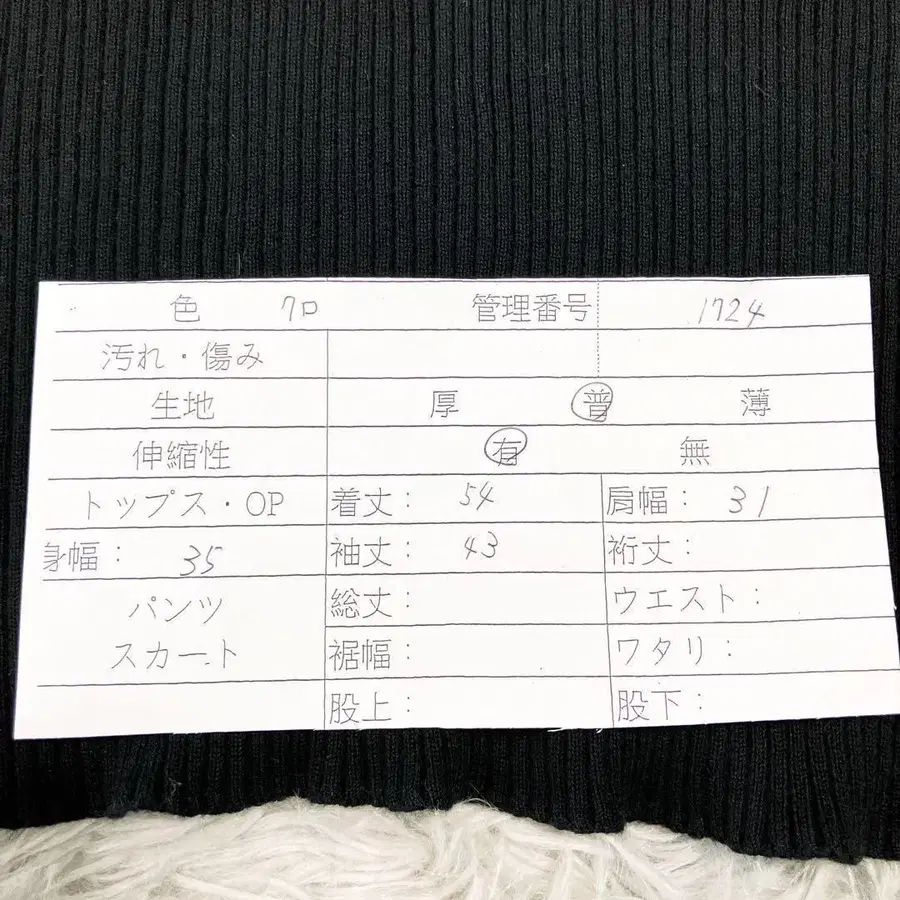 色 クロ 管理番号 1724
汚れ・傷み
生地 厚 普 薄
伸縮性 有 無
トップス・OP 着丈： 54 肩幅： 31
身幅： 35 袖丈： 43 裄丈：
パンツ 総丈： ウエスト：
スカート 裾幅： ワタリ：
股上： 股下：